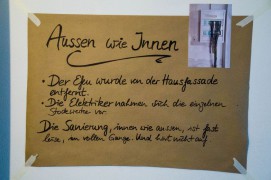 Aussen wie Innen
• Der Efeu wurde von der Hausfassade
entfernt.
• Die Elektriker nahmen sich die einzelnen
Stockwerke vor.
Die Sanierung, innen wie aussen, ist fast
im vollen Gange. Und hört nicht auf